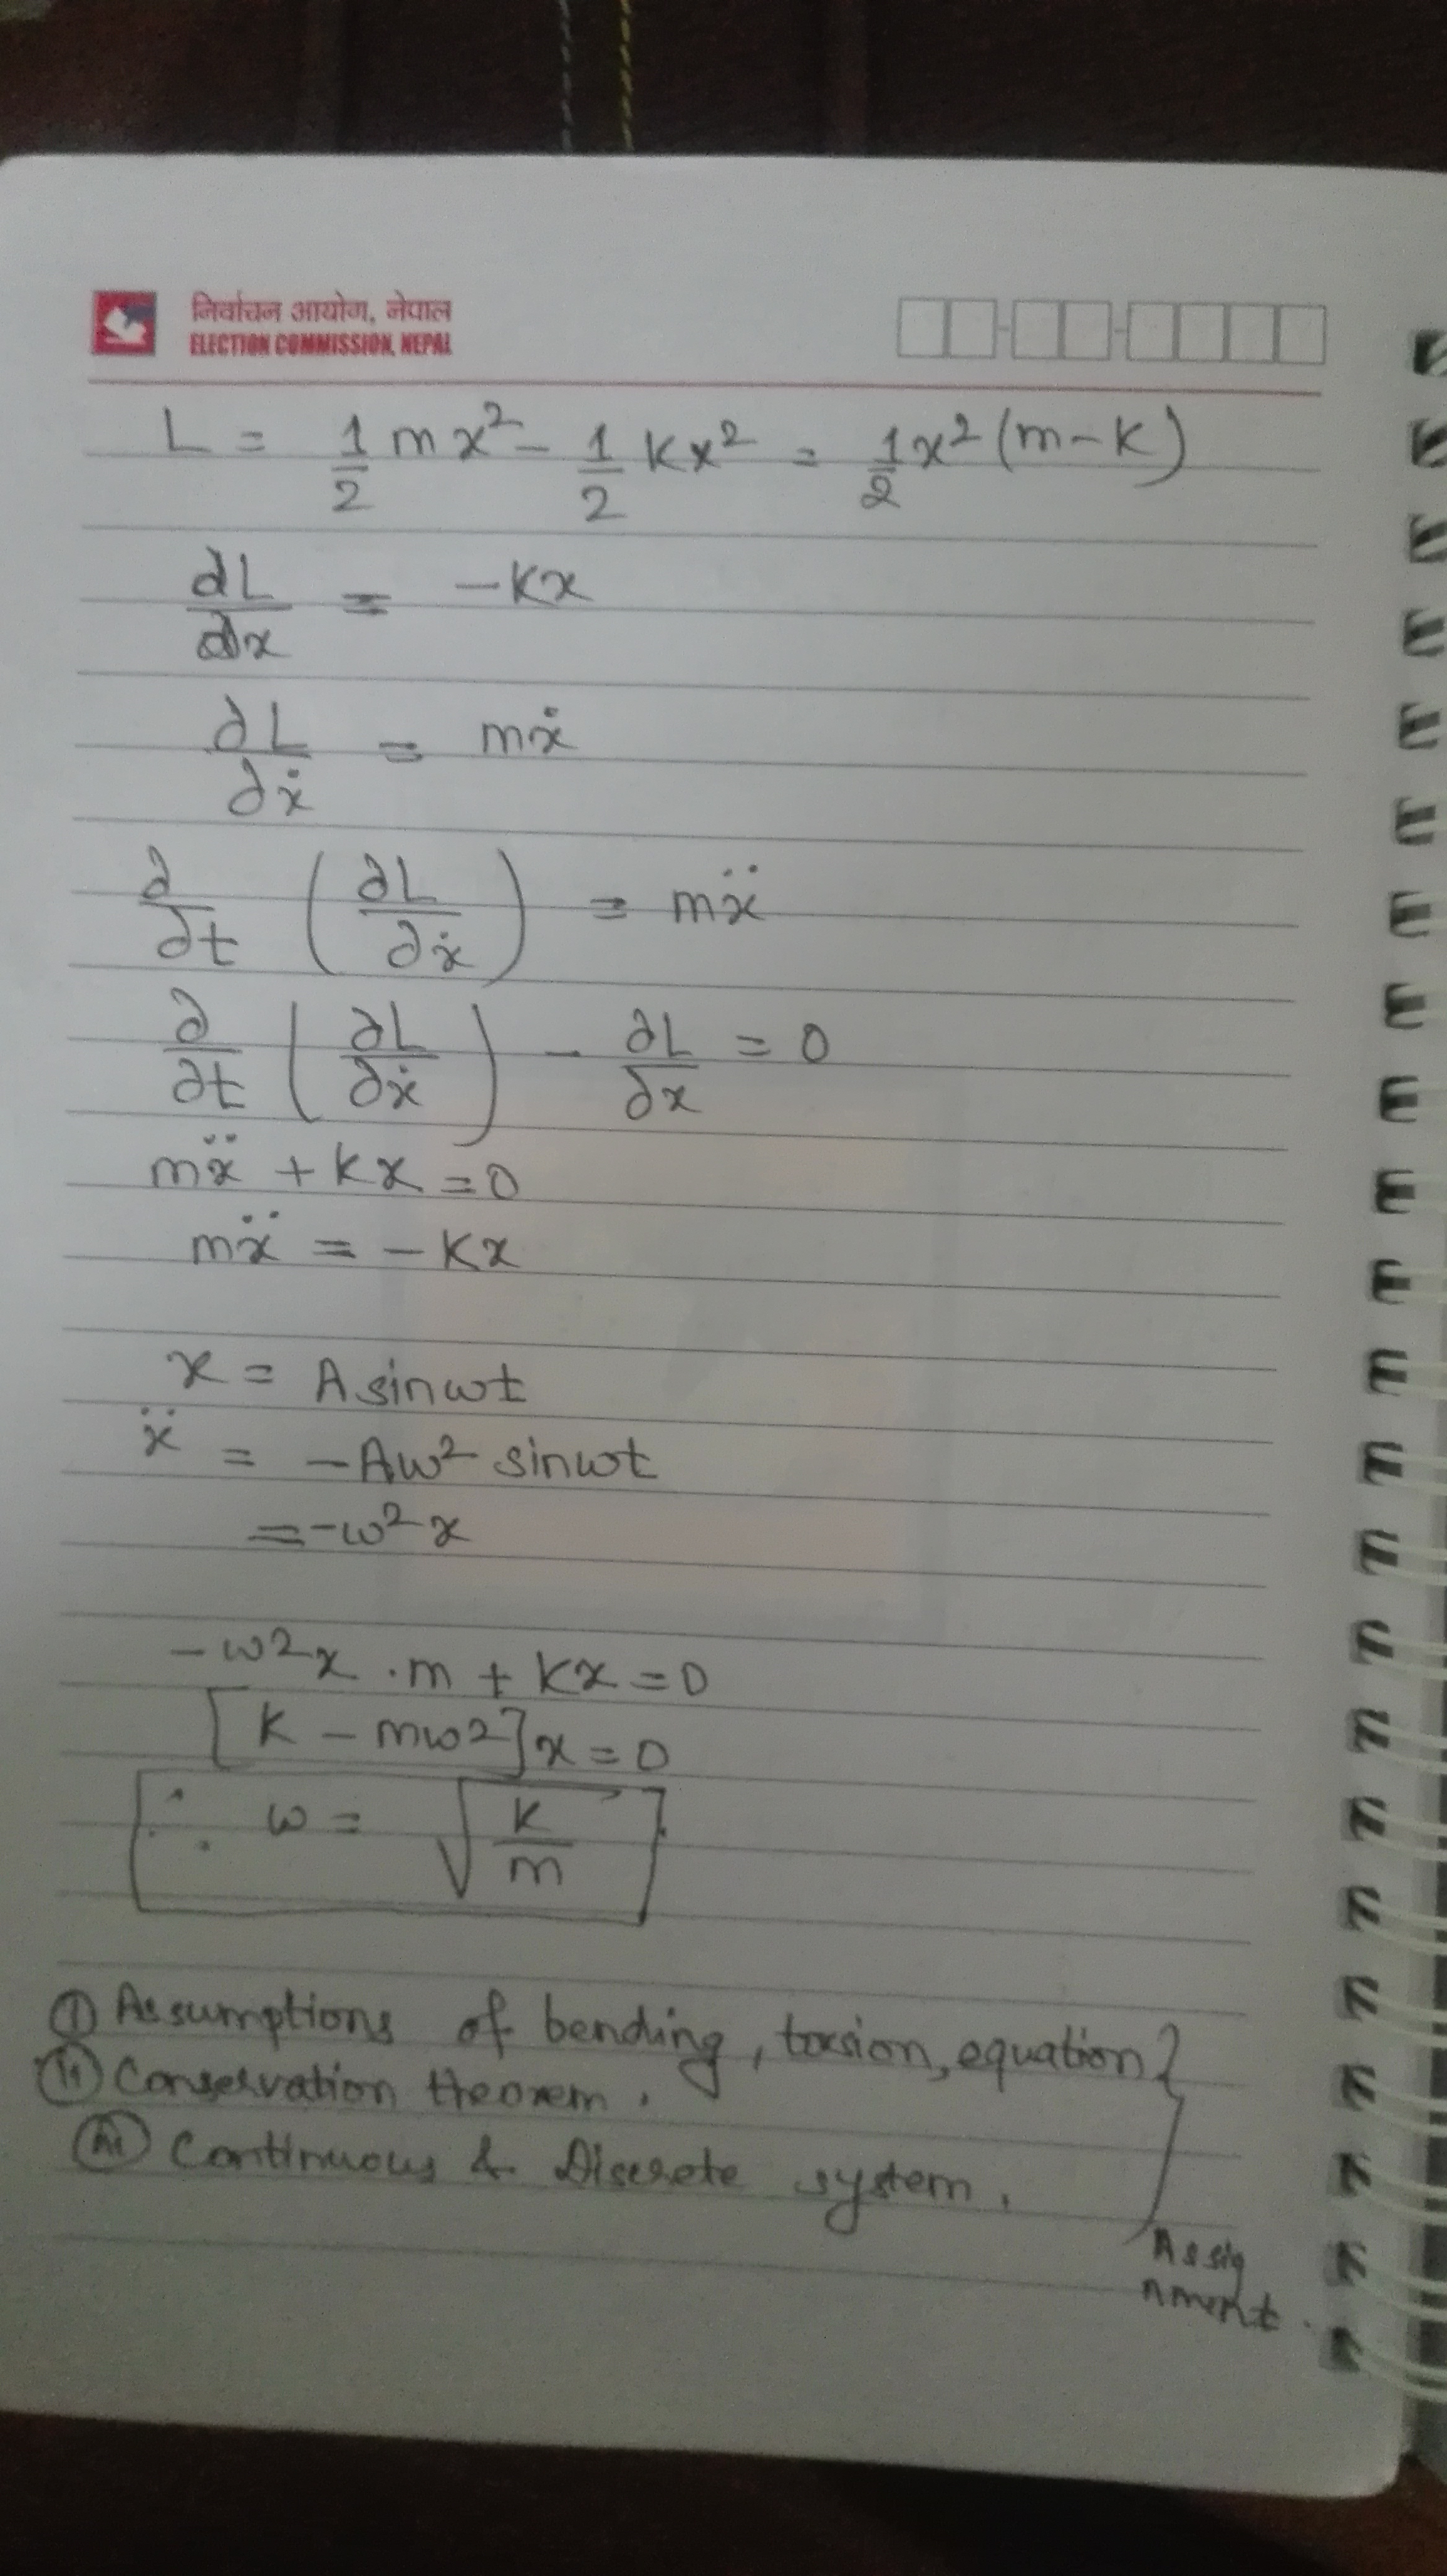 निर्वाचन आयोग, नेपाल
ELECTION COMMISSION, NEPAL
L = 1/2 mx² - 1/2 kx² = 1/2 x² (m - k)
∂L/∂x = -kx
∂L/∂ẋ = mẋ
∂/∂t (∂L/∂ẋ) = mẍ
∂/∂t (∂L/∂ẋ) - ∂L/∂x = 0
mẍ + kx = 0
mẍ = - kx
x = A sinωt
ẍ = -Aω² sinωt
= -ω²x
-ω²x · m + kx = 0
[k - mω2]x = 0
∴ ω = √(k/m)
(i) Assumptions of bending, torsion, equation }
(ii) Conservation theorem.
(iii) Continuous & Discrete system.
Assig
nment.